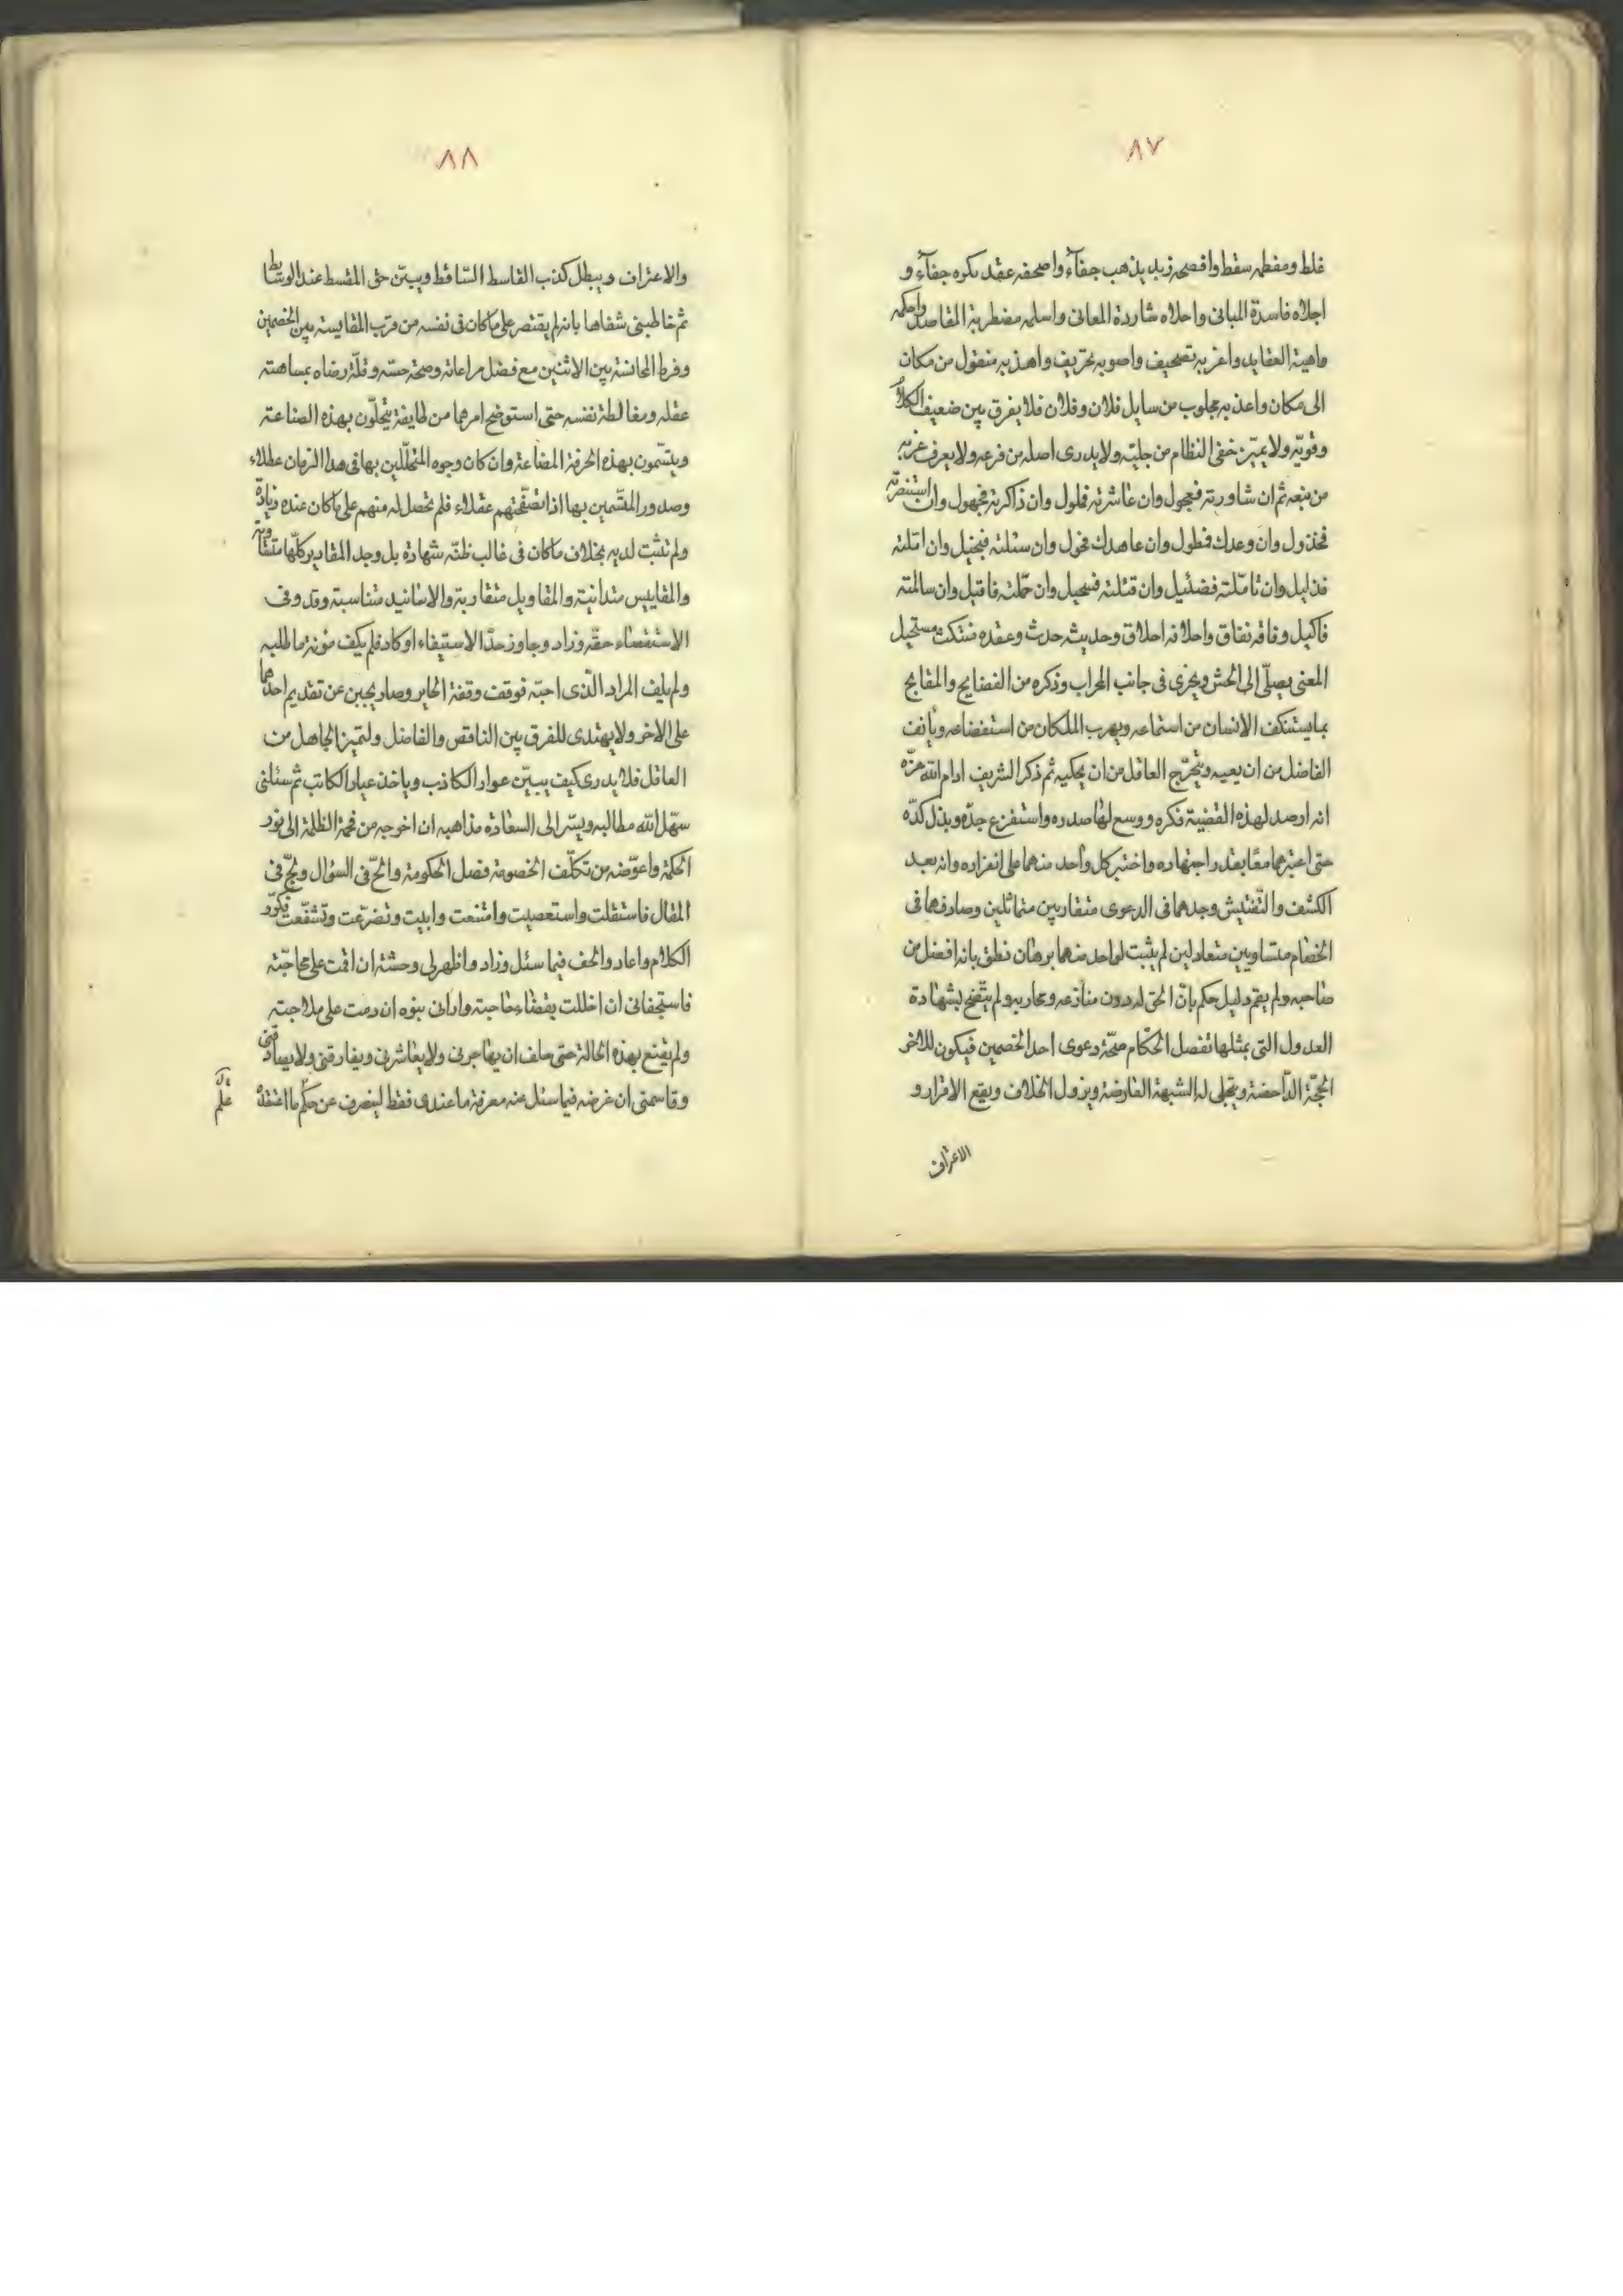 ٨٧
غلط ومفطه سقط وافصحه زبد يذهب جفآءً واصحفه عقد بكوه جفآءً و
اجلاه فاسدة المبانى واحلاه شاردة المعانى واسلمه مضطربة المقاصد واحكمه
ماهية العقايد واغربه تصحيف واصوبه تحريف واهذبه منقول من مكان
الى مكان واعذبه مجلوب من سايل فلان وفلان فلا يفرق بين ضعيف الكلام
وقويّه ولا يميّز خفى النظام من جليّه ولا يدرى اصله من فرعه ولا يعرف غربه
من نبعه ثم ان شاورته فعجول وان عاشرته فلول وان ذاكرته فجهول وان استنصرته
فخذول وان وعدك فطول وان عاهدك فحول وان سئلته فبخيل وان املته
فذليل وان تاملته فضئيل وان قتلته فسحيل وان حملته فاقيل وان سالمته
فاكيل وفاقه نفاق واخلاقه اخلاق وحديثه حدث وعقده منتكث مستحيل
المعنى يصلّى الى الحش ويخرى فى جانب المحراب وذكره من الفضايح والمقابح
بما يستنكف الانسان من استماعه ويهرب الملكان من استفضاعه ويأنف
الفاضل من ان يعيه ويتحرّج العاقل من ان يحكيه ثم ذكر الشريف ادام الله عزّه
انه ارصد لهذه القضيّة فكره ووسع لها صدره واستفرغ جدّه وبذل كدّه
حتى اعتبرهما معًا بقدر اجتهاده واختبر كل واحد منهما على انفراده وانه بعد
الكشف والتّفتيش وجدهما فى الدعوى متقاربين متماثلين وصادفهما فى
الخصام متساويين متعادلين لم يثبت لواحد منهما برهان نطق بانه افضل من
صاحبه ولم يقم دليل حكم بانّ الحق له دون منازعه ومحاربه ولم يتّضح بشهادة
العدول التى بمثلها تفصل الحكّام صحّة دعوى احد الخصمين فيكون للآخر
الحجّة الدّاحضة وينجلى له الشبهة العارضة ويزول الخلاف ويقع الاقرار و
الاعتراف
٨٨
والاعتراف ويبطل كذب القاسط السّاقط ويبيّن حق المقسط عند الوسايط
ثم خاطبنى شفاها بانه لم يقتصر على ما كان فى نفسه من قرب المقايسة بين الخصمين
وفرط المجانسة بين الاثنين مع فضل مراعاته وصحة حسّه وقلّة رضاه بمساهته
عقله ومغالطة نفسه حتى استوضح امرهما من طايفة يتحلّون بهذه الصناعة
ويتسّمون بهذه الحرفة المضاعة وان كان وجوه المتحلّلين بها فى هذا الزمان عطلاء
وصدور المتسّمين بها اذا تصفّحتهم عقلاء فلم تحصل له منهم على ما كان عنده زيادة
ولم تثبت لديه بخلاف ما كان فى غالب ظنّه شهادة بل وجد المقادير كلّها متقاوبة
والمقاييس متدانية والمقاويل متقاربة والاسانيد متناسبة وقد وفى
الاستقصاء حقّه وزاد وجاوز حدّ الاستيفاء او كاد فلم يكف مؤنة ما طلبه
ولم يلف المراد الّذى احبّه فوقف وقفة الحاير وصار يجبن عن تقديم احدهما
على الاخر ولا يهتدى للفرق بين الناقص والفاضل ولتميز الجاهل من
العاقل فلا يدرى كيف يبيّن عوار الكاذب وياخذ عيار الكاتب ثم سئلنى
سهّل الله مطالبه ويسّر الى السعادة مذاهبه ان اخرجه من فحمة الظلمة الى نور
الحكمة واعوّضه من تكلّف الخصومة فصل الحكومة والحّ فى السؤال ولجّ فى
المقال فاستقلت واستعصيت وامتنعت وابيت وتضرّعت وتشفّعت فكرّر
الكلام واعاد والحف فيما سئل وزاد واظهر لى وحشة ان اقمت على محاجّته
فاستجفانى ان اخللت بقضاء حاجته وارانى نبوه ان دمت على ملاجته
ولم يقنع بهذه الحالة حتى حلف ان يهاجرنى ولا يعاشرنى ويفارقنى ولا يصادقنى
وقاسمنى ان غرضه فيما سئل عنه معرفة ما عندى فقط لينصرف عن حكم ما اعتقده
علم